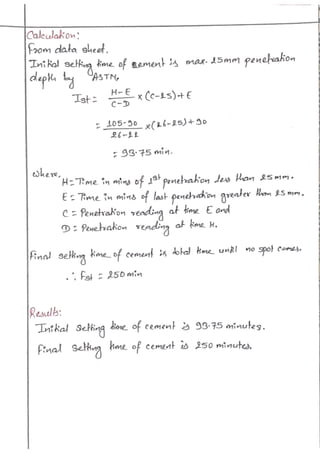 Calculation:
From data sheet.
Initial setting time of cement is max. 25mm penetration
depth by ASTM,
Ist = H-E / C-D x (C-25) + E
= 105-90 / 26-22 x (26-25) + 90
= 93.75 min.
where,
H = Time in mins of 1st penetration less than 25mm.
E = Time in mins of last penetration greater than 25mm.
C = Penetration reading at time E and
D = Penetration reading at time H.
Final setting time of cement is total time until no spot comes.
∴ Fst = 250 min
Result:
Initial Setting time of cement is 93.75 minutes.
Final Setting time of cement is 250 minutes.